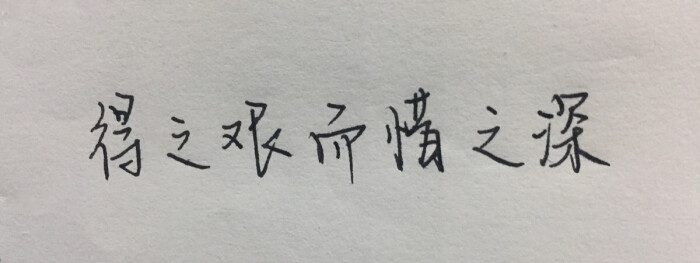 得之艰而惜之深